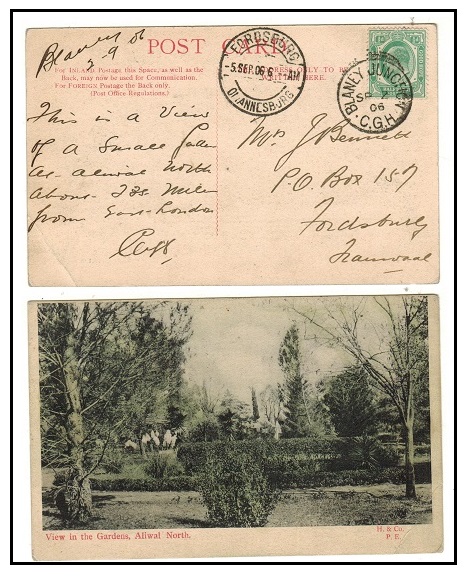 Blaney
2-9 06
POST CARD
For INLAND Postage this Space, as well as the
Back, may now be used for Communication.
For FOREIGN Postage the Back only.
(Post Office Regulations.)
FORDSBURG
5.SEP.06 6 AM
JOHANNESBURG
BLANEY JUNCTION
SP
06
C.G.H.
This is a View
of a Small
as Aliwal North
above 728 Miles
from East London
Mrs J Bennett
P.O. Box 157
Fordsburg
Transvaal
View in the Gardens, Aliwal North.
H. & Co.
P. E.